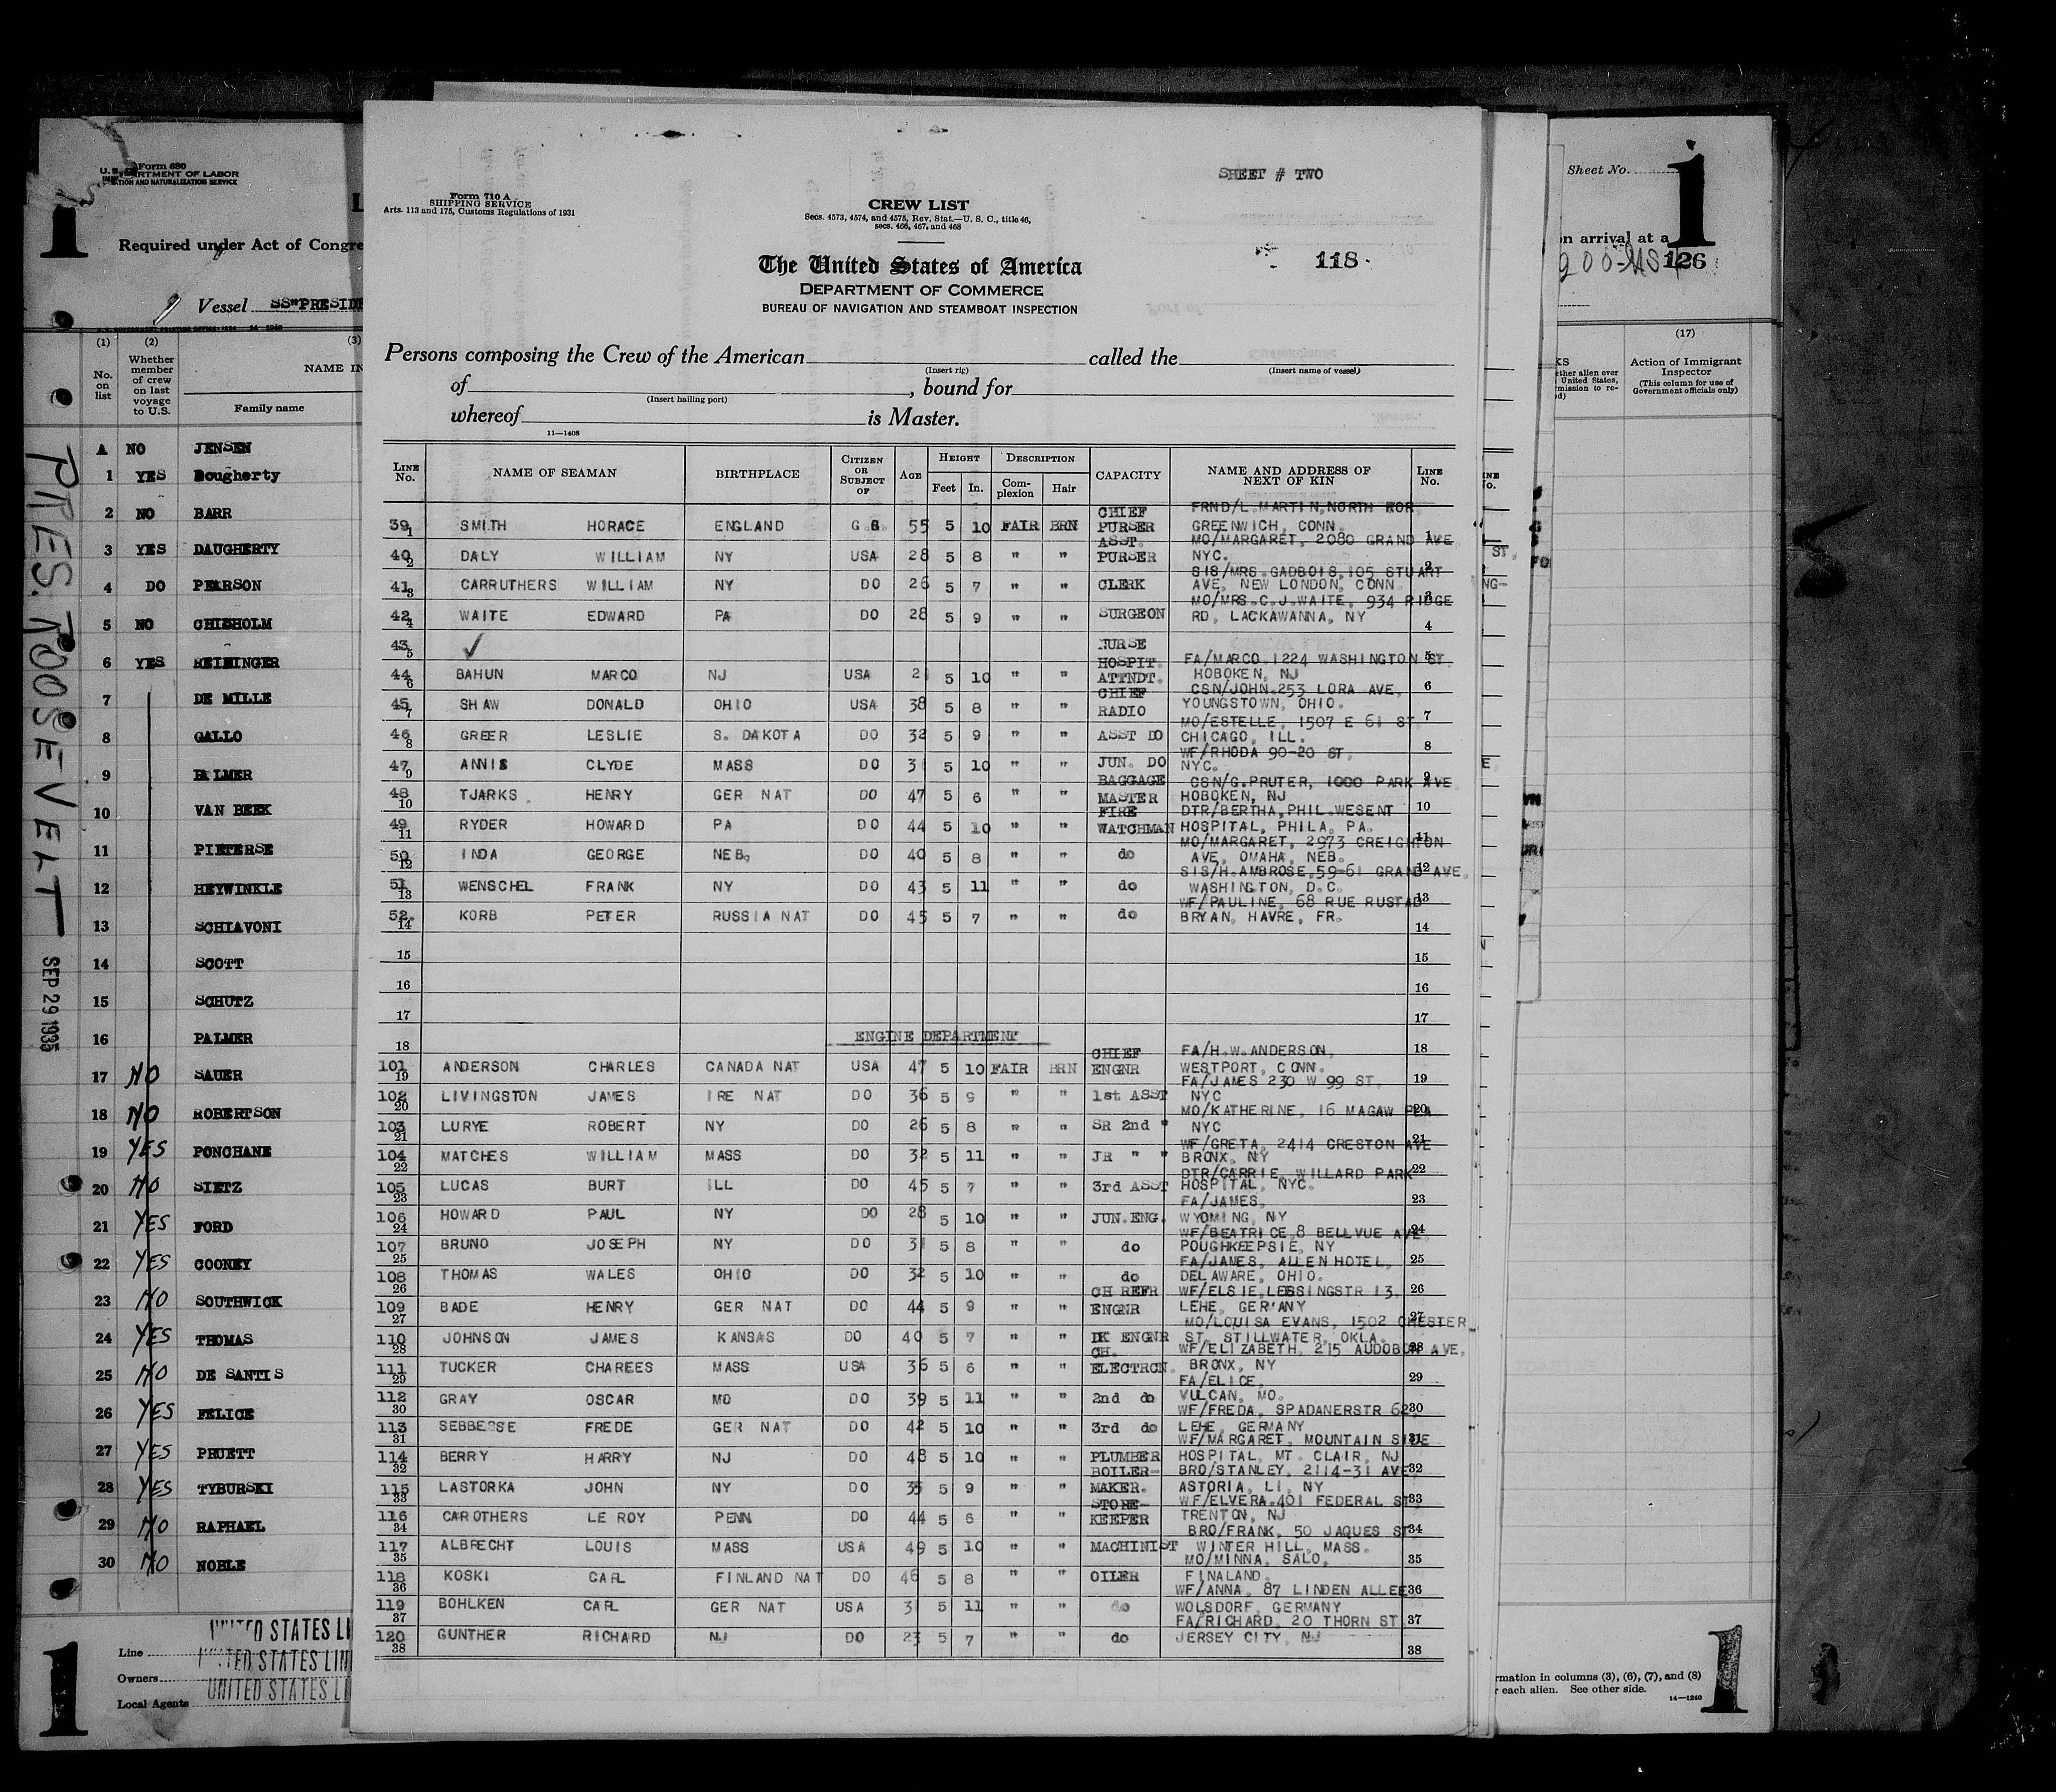 Form 680
U. S. DEPARTMENT OF LABOR
IMMIGRATION AND NATURALIZATION SERVICE
1
Required under Act of Congre
Vessel SS"PRESIDE
(1) (2) (3)
No. on list
Whether member of crew on last voyage to U.S.
NAME IN
Family name
A NO JENSEN
1 YES Dougherty
2 NO BARR
3 YES DAUGHERTY
4 DO PEARSON
5 NO CHISHOLM
6 YES REININGER
7 DE MILLE
8 GALLO
9 PALMER
10 VAN BEEK
11 PIETERSE
12 HEYWINKLE
13 SCHIAVONI
14 SCOTT
15 SCHUTZ
16 PALMER
17 NO SAUER
18 NO ROBERTSON
19 YES PONCHANE
20 NO SIETZ
21 YES FORD
22 YES COONEY
23 NO SOUTHWICK
24 YES THOMAS
25 NO DE SANTIS
26 YES FELICE
27 YES PRUETT
28 YES TYBURSKI
29 NO RAPHAEL
30 NO NOBLE
PRES. ROOSEVELT
SEP 29 1935
Line UNITED STATES LI
Owners UNITED STATES LIN
Local Agents UNITED STATES LI
1
SHEET # TWO
Form 710 A
SHIPPING SERVICE
Arts. 113 and 175, Customs Regulations of 1931
CREW LIST
Secs. 4573, 4574, and 4575, Rev. Stat.—U. S. C., title 46,
secs. 466, 467, and 468
118
The United States of America
DEPARTMENT OF COMMERCE
BUREAU OF NAVIGATION AND STEAMBOAT INSPECTION
Persons composing the Crew of the American called the
(Insert rig) (Insert name of vessel)
of , bound for
(Insert hailing port)
whereof is Master.
11—1408
LINE No. NAME OF SEAMAN BIRTHPLACE CITIZEN OR SUBJECT OF AGE HEIGHT Feet In. DESCRIPTION Complexion Hair CAPACITY NAME AND ADDRESS OF NEXT OF KIN LINE No.
39 1 SMITH HORACE ENGLAND G B 55 5 10 FAIR BRN CHIEF PURSER FRND/L.MARTIN,NORTH GREENWICH, CONN. 1
40 2 DALY WILLIAM NY USA 28 5 8 " " ASST. PURSER MO/MARGARET, 2080 GRAND AVE NYC. 2
41 3 CARRUTHERS WILLIAM NY DO 26 5 7 " " CLERK SIS/MRS.GADBOIS,105 STUART AVE, NEW LONDON, CONN 3
42 4 WAITE EDWARD PA DO 28 5 9 " " SURGEON MO/MRS.C.J.WAITE, 934 RIDGE RD, LACKAWANNA, NY 4
43 5 ✓ NURSE 5
44 6 BAHUN MARCO NJ USA 21 5 10 " " HOSPIT. ATTNDT. FA/MARCO.1224 WASHINGTON ST. HOBOKEN, NJ 6
45 7 SHAW DONALD OHIO USA 38 5 8 " " CHIEF RADIO CSN/JOHN.253 LORA AVE, YOUNGSTOWN, OHIO. 7
46 8 GREER LESLIE S. DAKOTA DO 32 5 9 " " ASST DO MO/ESTELLE, 1507 E 61 ST CHICAGO, ILL. 8
47 9 ANNIS CLYDE MASS DO 31 5 10 " " JUN. DO WF/RHODA 90-20 ST. NYC. 9
48 10 TJARKS HENRY GER NAT DO 47 5 6 " " BAGGAGE MASTER CSN/G.PRUTER, 1000 PARK AVE HOBOKEN, NJ 10
49 11 RYDER HOWARD PA DO 44 5 10 " " FIRE WATCHMAN DTR/BERTHA,PHIL.WESENT HOSPITAL, PHILA, PA. 11
50 12 INDA GEORGE NEB. DO 40 5 8 " " do MO/MARGARET, 2973 CREIGHTON AVE, OMAHA, NEB. 12
51 13 WENSCHEL FRANK NY DO 43 5 11 " " do SIS/H.AMBROSE,59-61 GRAND AVE, WASHINGTON, D.C. 13
52 14 KORB PETER RUSSIA NAT DO 45 5 7 " " do WF/PAULINE, 68 RUE RUSTAD BRYAN, HAVRE, FR. 14
15 15
16 16
17 17
18 ENGINE DEPARTMENT 18
101 19 ANDERSON CHARLES CANADA NAT USA 47 5 10 FAIR BRN CHIEF ENGNR FA/H.W.ANDERSON, WESTPORT, CONN. 19
102 20 LIVINGSTON JAMES IRE NAT DO 36 5 9 " " 1st ASST FA/JAMES 230 W 99 ST. NYC 20
103 21 LURYE ROBERT NY DO 26 5 8 " " SR 2nd " MO/KATHERINE, 16 MAGAW PLA NYC 21
104 22 MATCHES WILLIAM MASS DO 32 5 11 " " JR " " WF/GRETA, 2414 CRESTON AVE BRONX, NY 22
105 23 LUCAS BURT ILL DO 45 5 7 " " 3rd ASST DTR/CARRIE, WILLARD PARK HOSPITAL, NYC. 23
106 24 HOWARD PAUL NY DO 28 5 10 " " JUN.ENG. FA/JAMES, WYOMING, NY 24
107 25 BRUNO JOSEPH NY DO 31 5 8 " " do WF/BEATRICE,8 BELLVUE AVE. POUGHKEEPSIE, NY 25
108 26 THOMAS WALES OHIO DO 32 5 10 " " do FA/JAMES, ALLEN HOTEL, DELAWARE, OHIO. 26
109 27 BADE HENRY GER NAT DO 44 5 9 " " CH REFR ENGNR WF/ELSIE,LESSINGSTR 13, LEHE, GERMANY 27
110 28 JOHNSON JAMES KANSAS DO 40 5 7 " " DK ENGNR MO/LOUISA EVANS, 1502 CHESTER ST. STILLWATER, OKLA. 28
111 29 TUCKER CHAREES MASS USA 36 5 6 " " CH. ELECTRCN. WF/ELIZABETH, 215 AUDOBON AVE, BRONX, NY 29
112 30 GRAY OSCAR MO DO 39 5 11 " " 2nd do FA/ELICE, VULCAN, MO. 30
113 31 SEBBESSE FREDE GER NAT DO 42 5 10 " " 3rd do WF/FREDA, SPADANERSTR 62 LEHE, GERMANY 31
114 32 BERRY HARRY NJ DO 48 5 10 " " PLUMBER WF/MARGARET, MOUNTAIN SIDE HOSPITAL, MT. CLAIR, NJ 32
115 33 LASTORKA JOHN NY DO 35 5 9 " " BOILER- MAKER. BRO/STANLEY, 2114-31 AVE ASTORIA, LI, NY 33
116 34 CAROTHERS LE ROY PENN DO 44 5 6 " " STORE- KEEPER WF/ELVERA.401 FEDERAL ST TRENTON, NJ 34
117 35 ALBRECHT LOUIS MASS USA 49 5 10 " " MACHINIST BRO/FRANK, 50 JAQUES ST WINTER HILL, MASS. 35
118 36 KOSKI CARL FINLAND NAT DO 46 5 8 " " OILER MO/MINNA, SALO, FINALAND. 36
119 37 BOHLKEN CARL GER NAT USA 31 5 11 " " do WF/ANNA, 87 LINDEN ALLEE WOLSDORF, GERMANY 37
120 38 GUNTHER RICHARD NJ DO 23 5 7 " " do FA/RICHARD, 20 THORN ST JERSEY CITY, NJ 38
Sheet No. 1
on arrival at a
126
(17)
Action of Immigrant Inspector
(This column for use of Government officials only)
rmation in columns (3), (6), (7), and (8)
r each alien. See other side.
14—1240
1